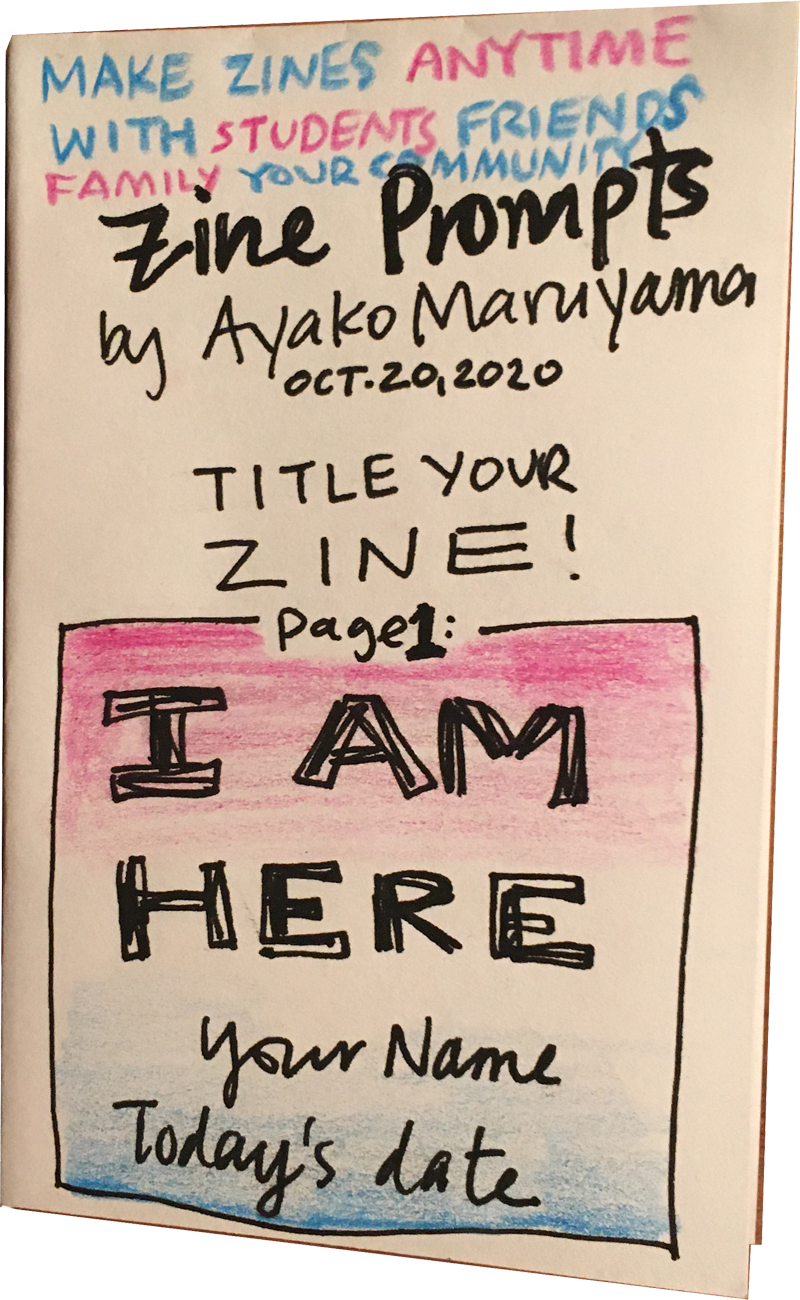 MAKE ZINES ANYTIME
WITH STUDENTS FRIENDS
FAMILY YOUR COMMUNITY
Zine Prompts
by Ayako Maruyama
OCT.20,2020
TITLE YOUR
ZINE!
Page1:
I AM
HERE
Your Name
Today's date